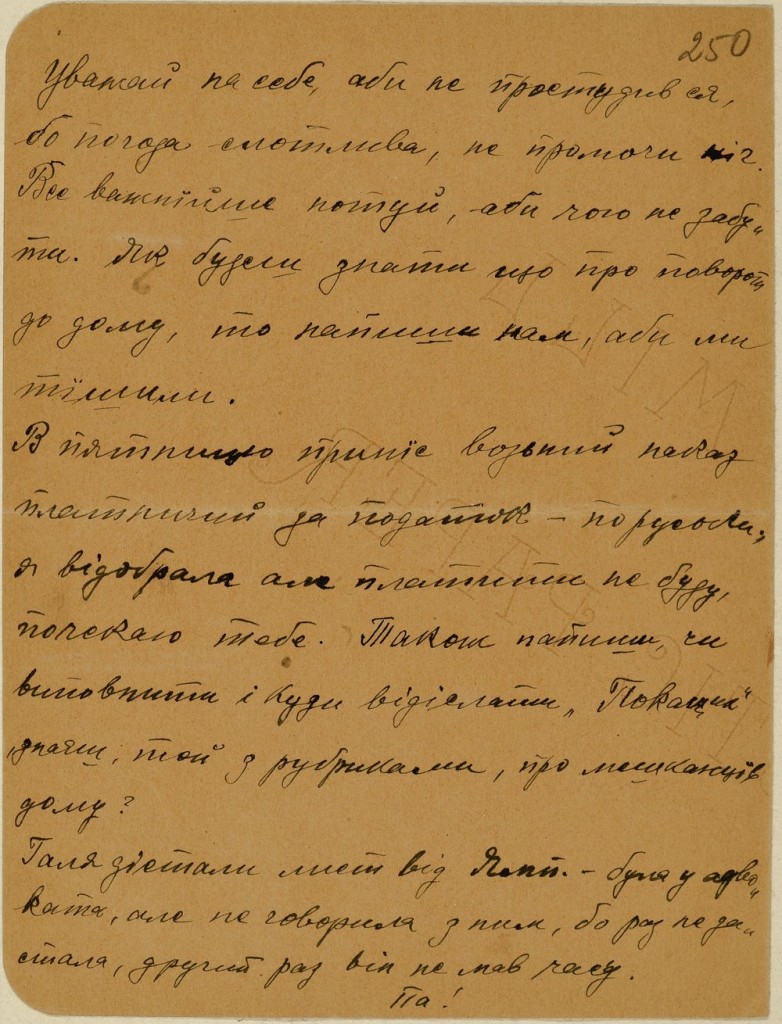 250
Уважай на себе, аби не простудився,
бо погода слотлива, не промочи ніг.
Все важнійше нотуй, аби чого не забу„
ти. Як будеш знати що про поворот
до дому, то напиши нам, аби ми
тїшили.
В пятницю принїс возьний наказ
платничий за податок – по руськи,
я відобрала але платити не буду,
почекаю тебе. Також напиши, чи
виповнити і куди відіслати „Покащик"
знаєш, той з рубриками, про мешканців
дому?
Галя дістали лист від Ямп. – була у адво„
ката, але не говорила з ним, бо раз не за„
стала, другий раз він не мав часу.
Па!